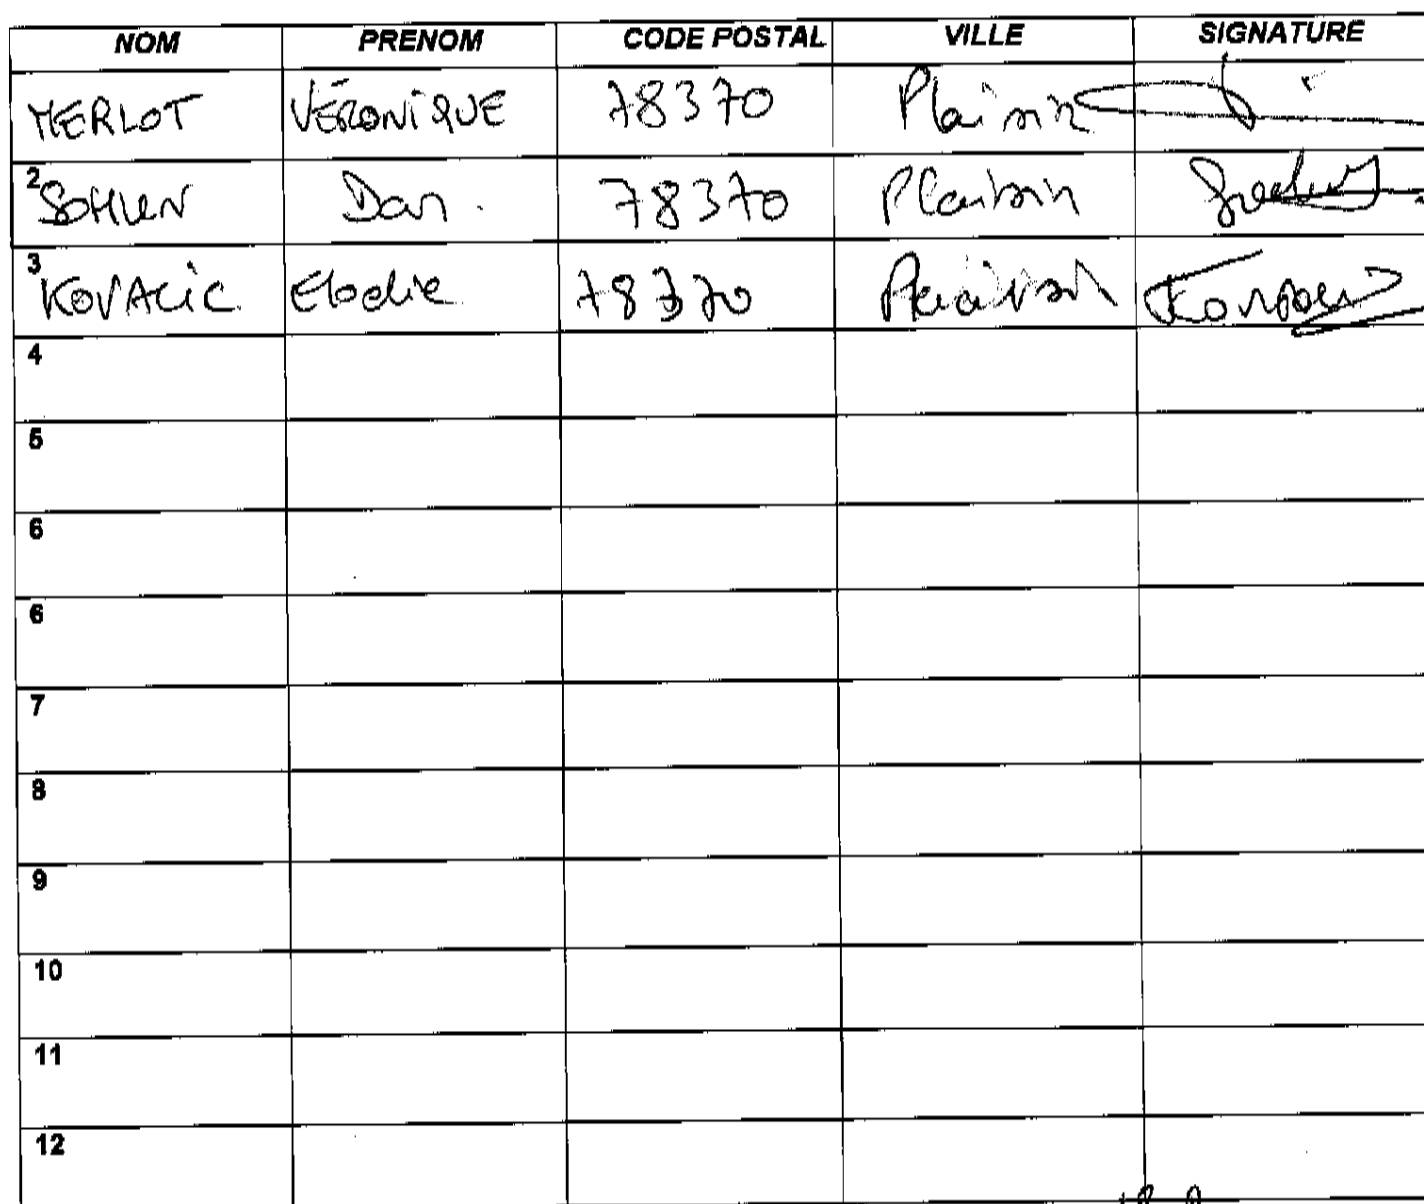 NOM PRENOM CODE POSTAL VILLE SIGNATURE
MERLOT VÉRONIQUE 78370 Plaisir
2 Dan. 78370 Plaisir
3 KOVACIC Elodie 78370 Plaisir
4
5
6
6
7
8
9
10
11
12